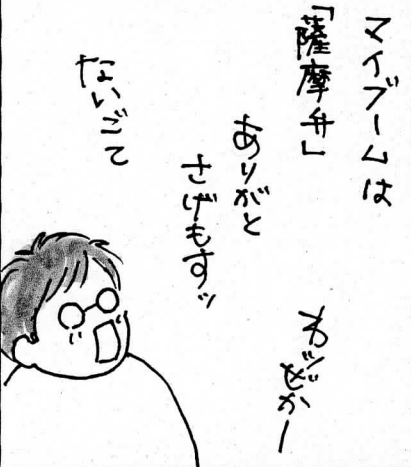 マイブームは
「薩摩弁」
ありがと
さげもすッ
ないごて
わッぜかー